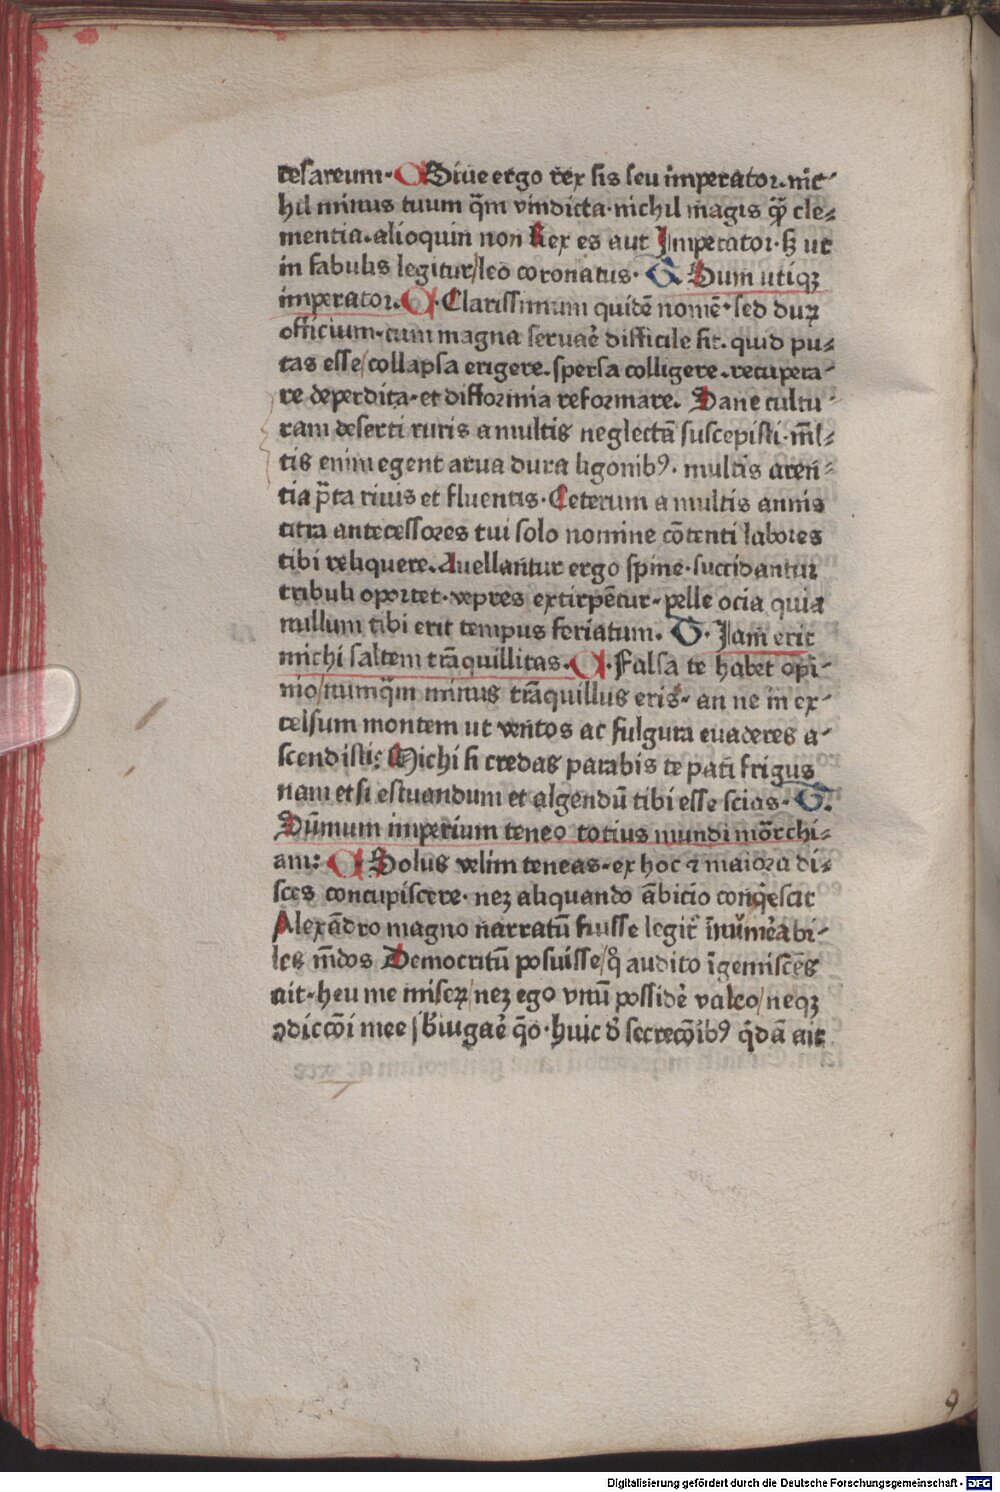 cesareum. C Siue ergo rex sis seu imperator. nic-
hil minus tuum q̄m vindicta. nichil magis qᷓ cle-
mentia. alioquin non Rex es aut Imperator. sꝫ ut
in fabulis legitur/leo coronatus. G. Sum utiqꝫ
imperator. C. Clarissimum quidē nomē. sed durꝫ
officium. cum magna seruaē difficile sit. quid pu-
tas esse/collapsa erigere. spersa colligere. recupera-
re deperdita. et difformia reformare. Sane cultu-
ram deserti ruris a multis neglectā suscepisti. m̄l-
tis enim egent arua dura ligonibꝰ. multis aren-
tia p̄ta riuis et fluentis. Ceterum a multis annis
citra antecessores tui solo nomine cōtenti labores
tibi reliquere. Auellantur ergo spine. succidantur
tribuli oportet. vepres extirpētur. pelle ocia quia
nullum tibi erit tempus feriatum. G. Iam erit
michi saltem trāquillitas. C. Falsa te habet opi-
nio/numq̄m minus trāquillus eris. an ne in ex-
celsum montem ut ventos ac fulgura euaderes a-
scendisti? Michi si credas parabis te pati frigus
nam etsi estuandum et algendū tibi esse scias. G.
Sūmum imperium teneo totius mundi mōrchi-
am: C Solus velim teneas. ex hoc ⁊ maiora di-
sces concupiscere. neꝫ aliquando ābicio conq̄escit
Alexādro magno narratū fuisse legit̄ īnūmēabi-
les mōdos Democritū posuisse/qđ audito īgemiscēs
ait. heu me miseꝝ/neꝫ ego vnū possidē valeo/neqꝫ
ꝯdiccōi mee sb̄iugaē q̄o. huic đ secrecōibꝰ q̄dā ait
9
Digitalisierung gefördert durch die Deutsche Forschungsgemeinschaft - DFG